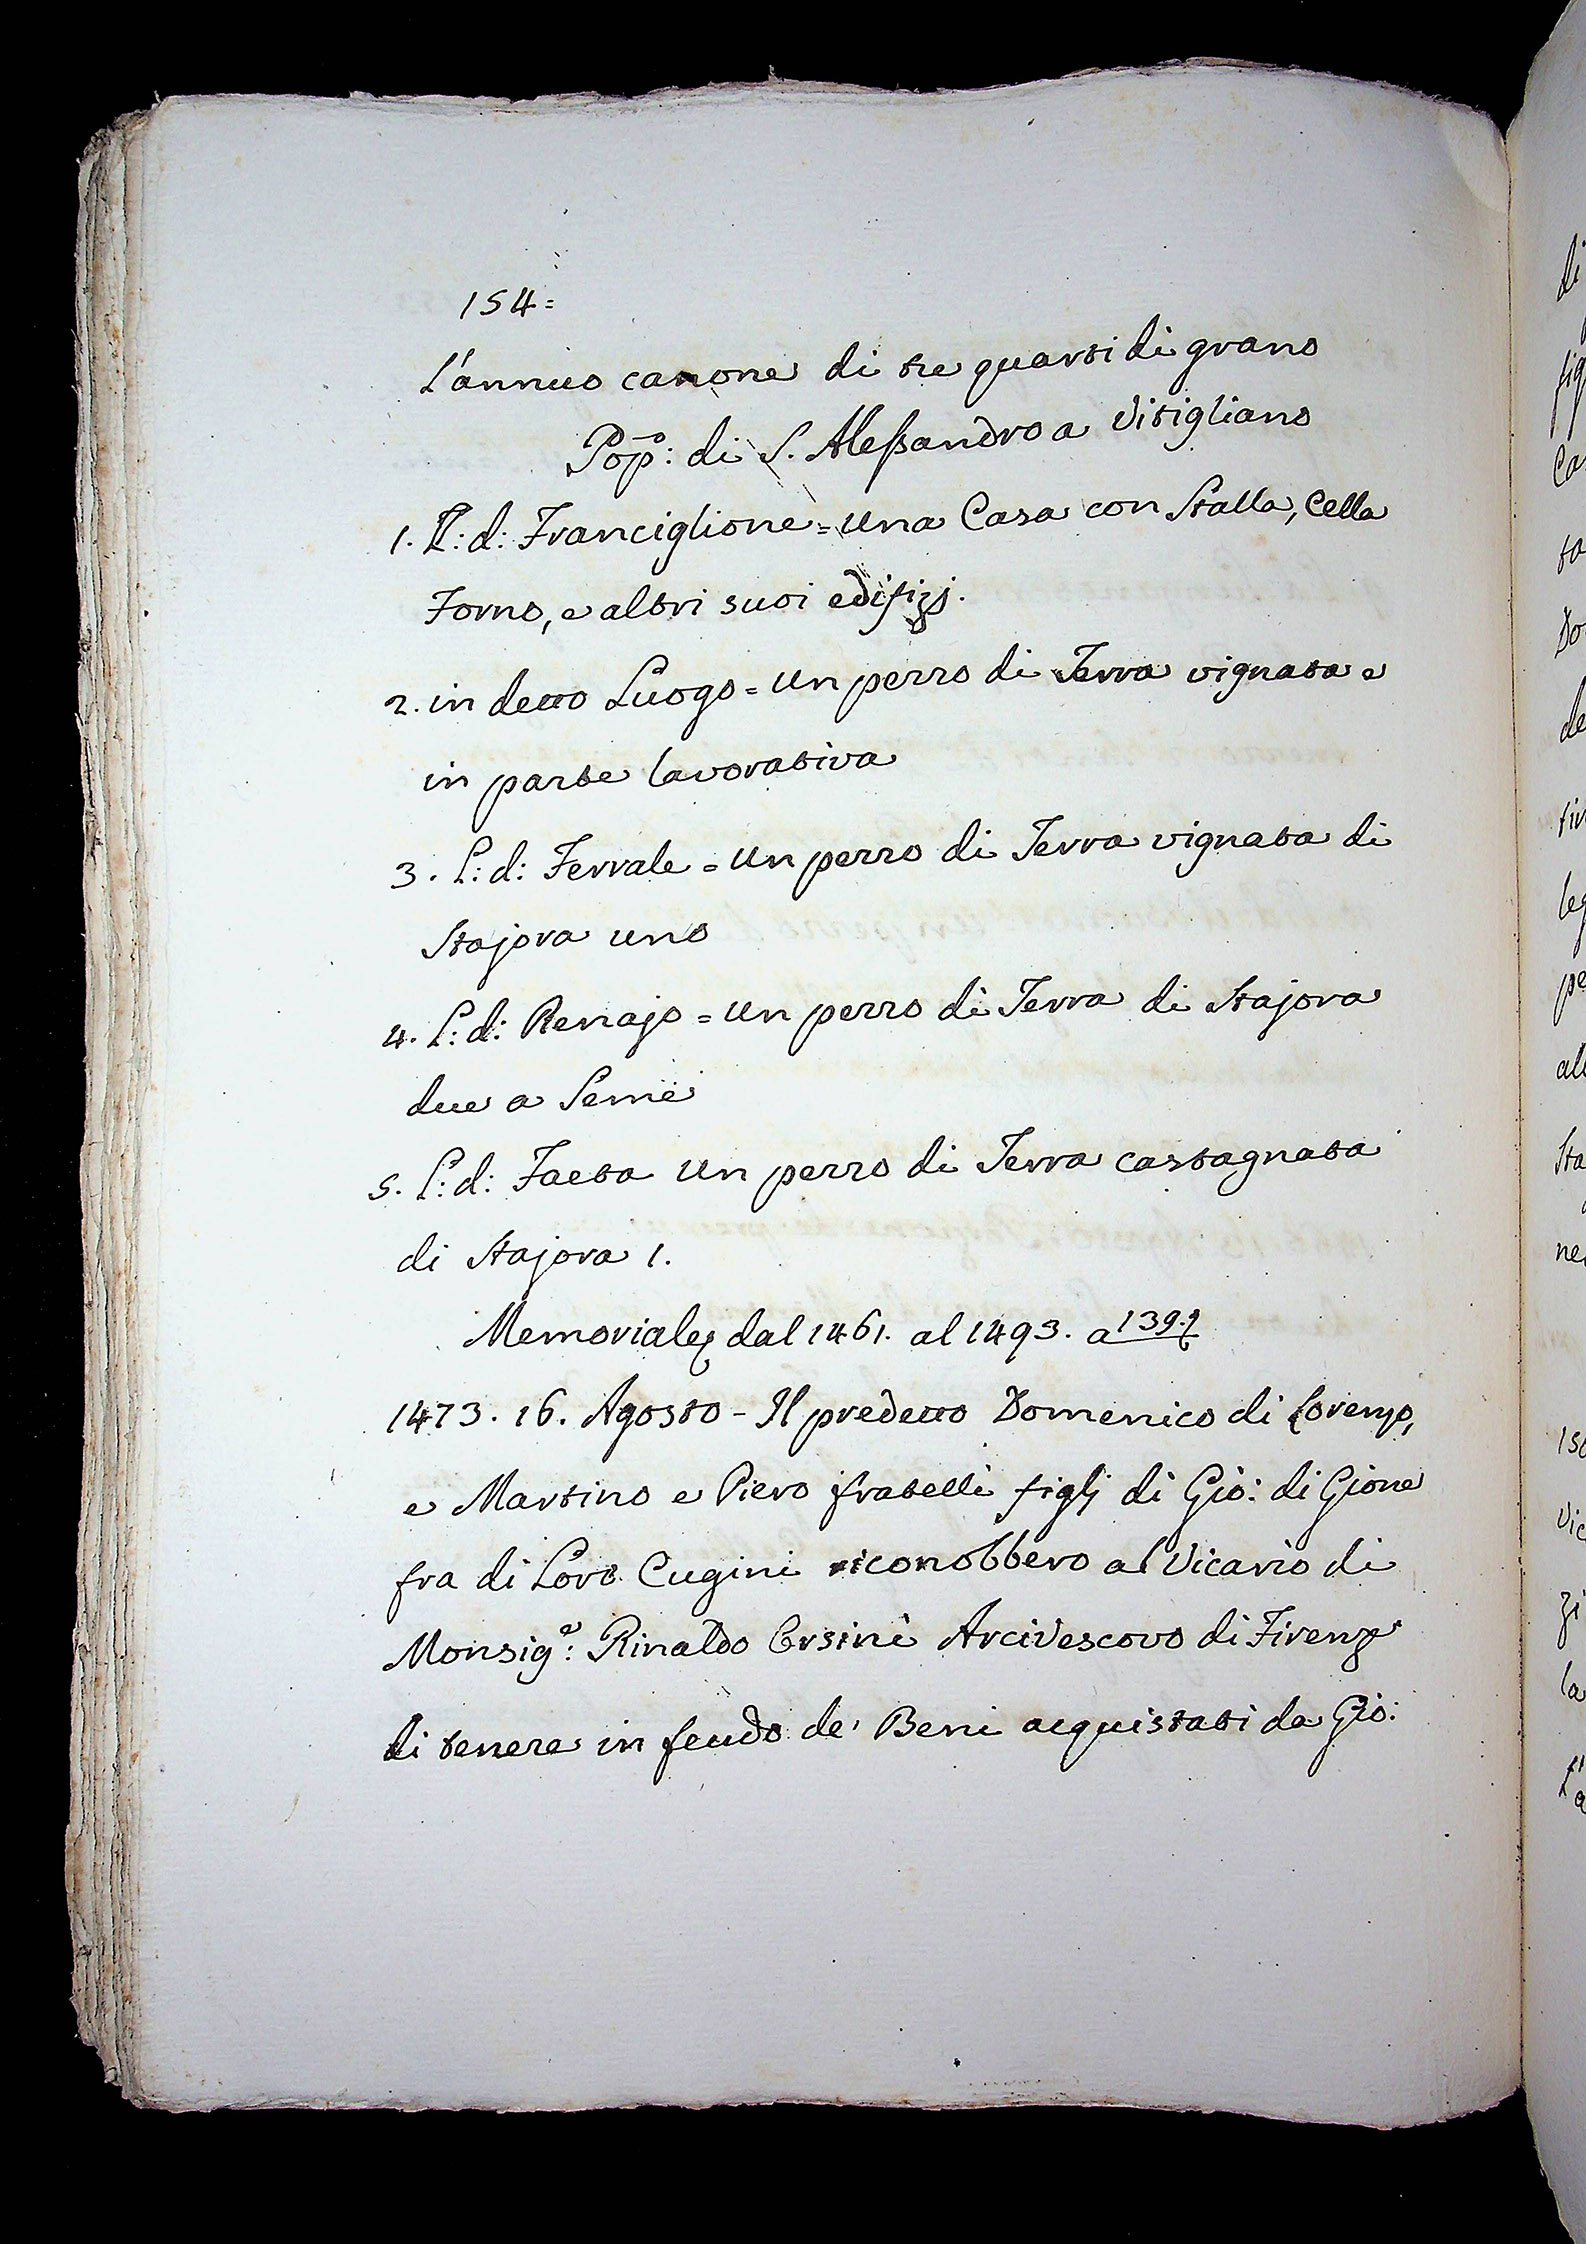 154=
L'annuo canone di tre quarti di grano
Pop̄o: di S. Aleſsandro a Vitigliano
1. L: d: Franciglione = una Casa con Stalla, Cella
Forno, e altri suoi edifizj.
2. in detto Luogo = un pezzo di Terra vignata e
in parte lavorativa
3. L: d: Ferrale = un pezzo di Terra vignata di
Stajora uno
4. L: d: Renajo = un pezzo di Terra di Stajora
due a Seme
5. L: d: Faeta un pezzo di Terra castagnata
di Stajora 1.
Memoriale dal 1461. al 1493. a 139.
1473. 16. Agosto - Il predetto Domenico di Lorenzo,
e Martino e Piero fratelli figlj di Gio: di Gione
fra di Loro Cugini riconobbero al Vicario di
Monsige: Rinaldo Orsini Arcivescovo di Firenze
di tenere in feudo de' Beni acquistati da Gio: